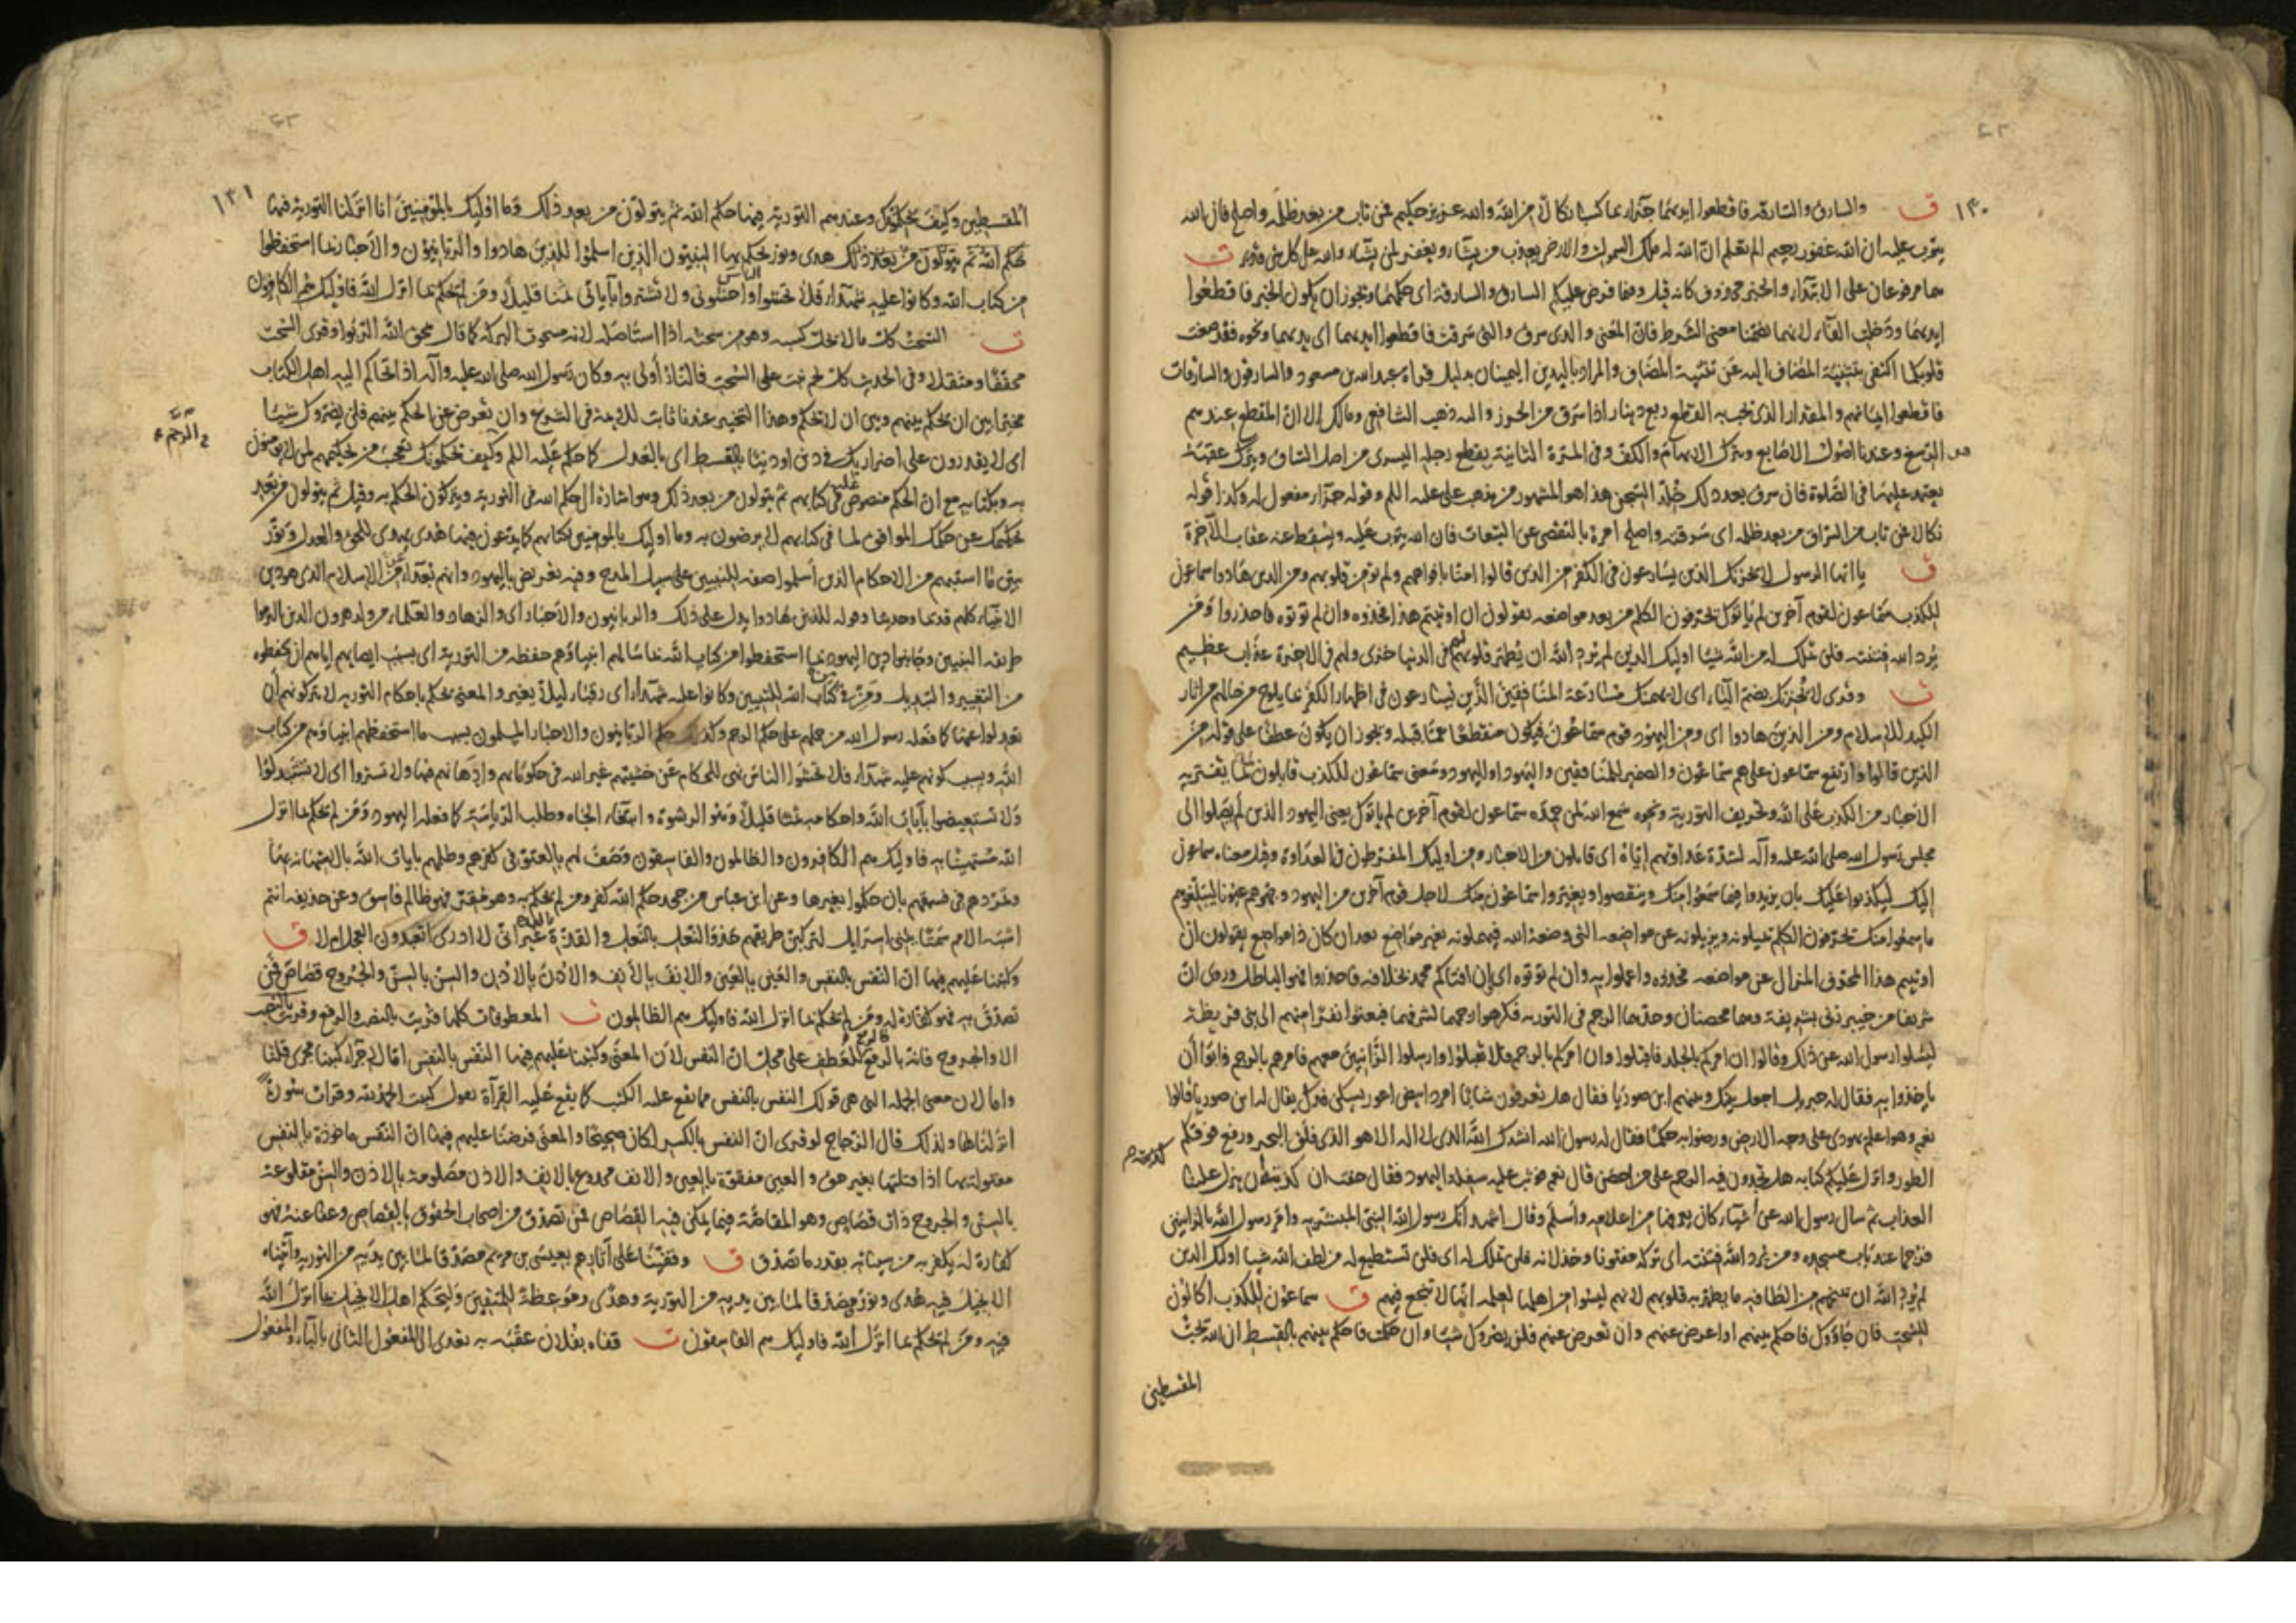 ١٣٠
ق والسارق والسارقة فاقطعوا ايديهما جزاء بما كسبا نكالا من الله والله عزيز حكيم فمن تاب من بعد ظلمه واصلح فان الله
يتوب عليه ان الله غفور رحيم الم تعلم ان الله له ملك السموات والارض يعذب من يشاء ويغفر لمن يشاء والله على كل شئ قدير ت
هما مرفوعان على الابتداء والخبر محذوف كانه قيل وفيما فرض عليكم السارق والسارقة اى حكمهما ويجوز ان يكون الخبر فاقطعوا
ايديهما ودخلت الفاء لانهما تضمنا معنى الشرط فان المعنى والذى سرق والتى سرقت فاقطعوا ايديهما اى يديهما ونحوه فقد صغت
قلوبكما اكتفى بتثنية المضاف اليه عن تثنية المضاف والمراد باليدين اليمينان بدليل قراءة عبد الله بن مسعود والسارقون والسارقات
فاقطعوا ايمانهم والمقدار الذى تجب به القطع ربع دينار اذا سرق من الحرز واليه ذهب الشافعى ومالك الا ان المقطع عندهم
هو الرسغ وعندنا اصول الاصابع ويترك الابهام والكف وفى المرة الثانية يقطع رجله اليسرى من اصل الساق ويترك عقبه
يعتمد عليها فى الصلوة فان سرق بعد ذلك خلد السجن هذا هو المشهور من مذهب على عليه السلم وقوله جزاء مفعول له وكذا قوله
نكالا فمن تاب من السراق من بعد ظلمه اى سرقته واصلح امره بالتفصى عن التبعات فان الله يتوب عليه ويسقط عنه عقاب الآخرة
ق يا ايها الرسول لا يحزنك الذين يسارعون فى الكفر من الذين قالوا امنا بافواههم ولم تؤمن قلوبهم ومن الذين هادوا سماعون
للكذب سماعون لقوم آخرين لم ياتوك يحرفون الكلم من بعد مواضعه يقولون ان اوتيتم هذا فخذوه وان لم تؤتوه فاحذروا ومن
يرد الله فتنته فلن تملك له من الله شيئا اولئك الذين لم يرد الله ان يطهر قلوبهم لهم فى الدنيا خزى ولهم فى الاخرة عذاب عظيم
ت وقرئ لا يحزنك بضم الياء اى لا يهمنك مسارعة المنافقين الذين يسارعون فى اظهار الكفر بما يلوح من حالهم من اثار
الكيد للاسلام ومن الذين هادوا اى ومن اليهود قوم سماعون فيكون منقطعا عما قبله ويجوز ان يكون عطفا على قوله من
الذين قالوا وارتفع سماعون على هم سماعون والضمير للمنافقين واليهود او لليهود ومعنى سماعون للكذب قابلون لما يفتريه
الاحبار من الكذب على الله وتحريف التورية ونحوه سمع الله لمن حمده سماعون لقوم آخرين لم ياتوك يعنى اليهود الذين لم يصلوا الى
مجلس رسول الله صلى الله عليه وآله لشدة عداوتهم اياه اى قابلون من الاحبار ومن اولئك المفرطون فى العداوة وقيل معناه سماعون
اليك ليكذبوا عليك بان يزيدوا فيما سمعوا منك وينقصوا ويغيروا سماعون منك لاجل قوم آخرين من اليهود وجهوهم عيونا ليبلغوهم
ما سمعوا منك يحرفون الكلم يميلونه ويزيلونه عن مواضعه التى وضعه الله فيهملونه بغير مواضع بعد ان كان ذا مواضع يقولون ان
اوتيتم هذا المحرف المزال عن مواضعه فخذوه واعملوا به وان لم تؤتوه اى ان افتاكم محمد بخلافه فاحذروا فهو الباطل وروى ان
شريفا من خيبر زنى بشريفة وهما محصنان وحدهما الرجم فى التورية فكرهوا رجمهما لشرفهما فبعثوا نفرا منهم الى بنى قريظة
ليسئلوا رسول الله عن ذلك وقالوا ان امركم بالجلد فاقبلوا وان امركم بالرجم فلا تقبلوا وارسلوا الزانيين معهم فامرهم بالرجم فابوا ان
ياخذوا به فقال له جبريل اجعل بينك وبينهم ابن صوريا فقال هل تعرفون شابا امرد ابيض اعور يسكن فدك يقال له ابن صوريا قالوا
نعم وهو اعلم يهودى على وجه الارض ورضوا به حكما فقال له رسول الله انشدك الله الذى لا اله الا هو الذى فلق البحر ورفع فوقكم
الطور وانزل عليكم كتابه هل تجدون فيه الرجم على من احصن قال نعم فوثب عليه سفلة اليهود فقال خفت ان كذبته ان ينزل علينا
العذاب ثم سال رسول الله عن اشياء كان يعرفها من اعلامه واسلم وقال اشهد انك رسول الله النبى المبشر به وامر رسول الله بالزانيين
فرجما عند باب مسجده ومن يرد الله فتنته اى تركه مفتونا وخذلانه فلن تملك له اى فلن تستطيع له من لطف الله شيئا اولئك الذين
لم يرد الله ان يمنحهم من الطافه ما يطهر به قلوبهم لانهم ليسوا من اهلها لعلمه انها لا تنجع فيهم ق سماعون للكذب اكالون
للسحت فان جاؤوك فاحكم بينهم او اعرض عنهم وان تعرض عنهم فلن يضروك شيئا وان حكمت فاحكم بينهم بالقسط ان الله يحب
المقسطين
١٣١
المقسطين وكيف يحكمونك وعندهم التورية فيها حكم الله ثم يتولون من بعد ذلك وما اولئك بالمؤمنين انا انزلنا التورية فيها
هدى ونور يحكم بها النبيون الذين اسلموا للذين هادوا والربانيون والاحبار بما استحفظوا
من كتاب الله وكانوا عليه شهداء فلا تخشوا الناس واخشونى ولا تشتروا بآياتى ثمنا قليلا ومن لم يحكم بما انزل الله فاولئك هم الكافرون
ت السحت كل ما لا يحل كسبه وهو من سحته اذا استاصله لانه مسحوق البركة كما قال يمحق الله الربوا وقرئ السحت
مخففا ومثقلا وفى الحديث كل لحم نبت على السحت فالنار أولى به وكان رسول الله صلى الله عليه وآله اذا تحاكم اليه اهل الكتاب
مخيرا بين ان يحكم بينهم وبين ان لا يحكم وهذا التخيير عندنا ثابت للائمة فى الشرع وان تعرض عن الحكم بينهم فلن يضروك شيئا
اى لا يقدرون على اضرار بك فى دين او دنيا بالقسط اى بالعدل كما حكم عليه السلم وكيف يحكمونك تعجيب من تحكيمهم لمن لا يؤمنون
الرجم
به وبكتابه مع ان الحكم منصوص عليه فى كتابهم ثم يتولون من بعد ذلك وهو اشارة الى حكم الله فى التورية ويتركون الحكم به وقيل ثم يتولون من بعد
تحكيمك عن حكمك الموافق لما فى كتابهم لا يرضون به وما اولئك بالمؤمنين بكتابهم كما يدعون فيها هدى يهدى للحق والعدل ونور
يبين ما استبهم من الاحكام الذين أسلموا صفة للنبيين على سبيل المدح وفيه تعريض باليهود وانهم بعداء من الاسلام الذى هو دين
الانبياء كلهم قديما وحديثا وقوله للذين هادوا يدل على ذلك والربانيون والاحبار اى والزهاد والعلماء من ولد هرون الذين التزموا
طريقة النبيين وجانبوا دين اليهود بما استحفظوا من كتاب الله بما سالهم انبياؤهم حفظه من التورية اى بسبب ايصائهم اياهم ان يحفظوه
من التغيير والتبديل ومن فى كتاب الله للتبيين وكانوا عليه شهداء اى رقباء ليلا يغير والمعنى يحكم باحكام التورية لا يتركونهم ان
يعدلوا عنها كما فعله رسول الله من حملهم على حكم الرجم وكذلك حكم الربانيون والاحبار المسلمون بسبب ما استحفظهم انبياؤهم من كتاب
الله وبسبب كونهم عليه شهداء فلا تخشوا الناس نهى للحكام عن خشيتهم غير الله فى حكوماتهم وادهانهم فيها ولا تشتروا اى لا تستبدلوا
ولا تستعيضوا بآيات الله واحكامه ثمنا قليلا وهو الرشوة وابتغاء الجاه وطلب الرياسة كما فعله اليهود ومن لم يحكم بما انزل
الله مستهينا به فاولئك هم الكافرون والظالمون والفاسقون وصف لهم بالعتو فى كفرهم وظلمهم بايات الله بالاستهانة بها
وتمردهم فى فسقهم بان حكموا بغيرها وعن ابن عباس من جحد حكم الله كفر ومن لم يحكم به وهو مقر فهو ظالم فاسق وعن حذيفة انتم
اشبه الامم سمتا ببنى اسرايل لتركبن طريقهم حذو النعل بالنعل والقذة بالقذة غير انى لا ادرى اتعبدون العجل ام لا ق
وكتبنا عليهم فيها ان النفس بالنفس والعين بالعين والانف بالأنف والاذن بالاذن والسن بالسن والجروح قصاص فمن
تصدق به فهو كفارة له ومن لم يحكم بما انزل الله فاولئك هم الظالمون ت المعطوفات كلها قرئت بالنصب والرفع وقرئت بالنصب
الا والجروح فانه بالرفع فالرفع للعطف على محل ان النفس لان المعنى وكتبنا عليهم فيها النفس بالنفس اما لاجراء كتبنا مجرى قلنا
واما لان معنى الجملة التى هى قولك النفس بالنفس مما يقع عليه الكتب كما يقع عليه القراءة تقول كتبت الحمد لله وقرات سورة
انزلناها ولذلك قال الزجاج لو قرئ ان النفس بالكسر لكان صحيحا والمعنى فرضنا عليهم فيها ان النفس ماخوذة بالنفس
مقتولة بها اذا قتلتها بغير حق والعين مفقؤة بالعين والانف مجدوع بالانف والاذن مصلومة بالاذن والسن مقلوعة
بالسن والجروح ذات قصاص وهو المقاصة فيما يمكن فيه القصاص فمن تصدق من اصحاب الحقوق بالقصاص وعفا عنه فهو
كفارة له يكفر به من سيئاته بقدر ما تصدق ق وقفينا على آثارهم بعيسى بن مريم مصدقا لما بين يديه من التورية وآتيناه
الانجيل فيه هدى ونور ومصدقا لما بين يديه من التورية وهدى وموعظة للمتقين وليحكم اهل الانجيل بما انزل الله
فيه ومن لم يحكم بما انزل الله فاولئك هم الفاسقون ت قفاه بفلان عقبه به تعدى الى المفعول الثانى بالباء والمفعول